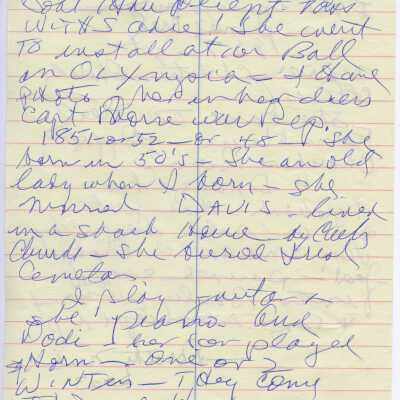 with Sadie! She went
to installation Ball
in Olympia - I have
photo her in her dress
Capt Horne was Rep.
1851 - or 52 - or 48 - she
born in 50's - She an old
lady when I born - she
married DAVIS - lived
in a shack house - by
Church - she buried
Cemetary
I play guitar +
she piano. And
Dodi - her son played
Horn - one or 2
Winters - They come